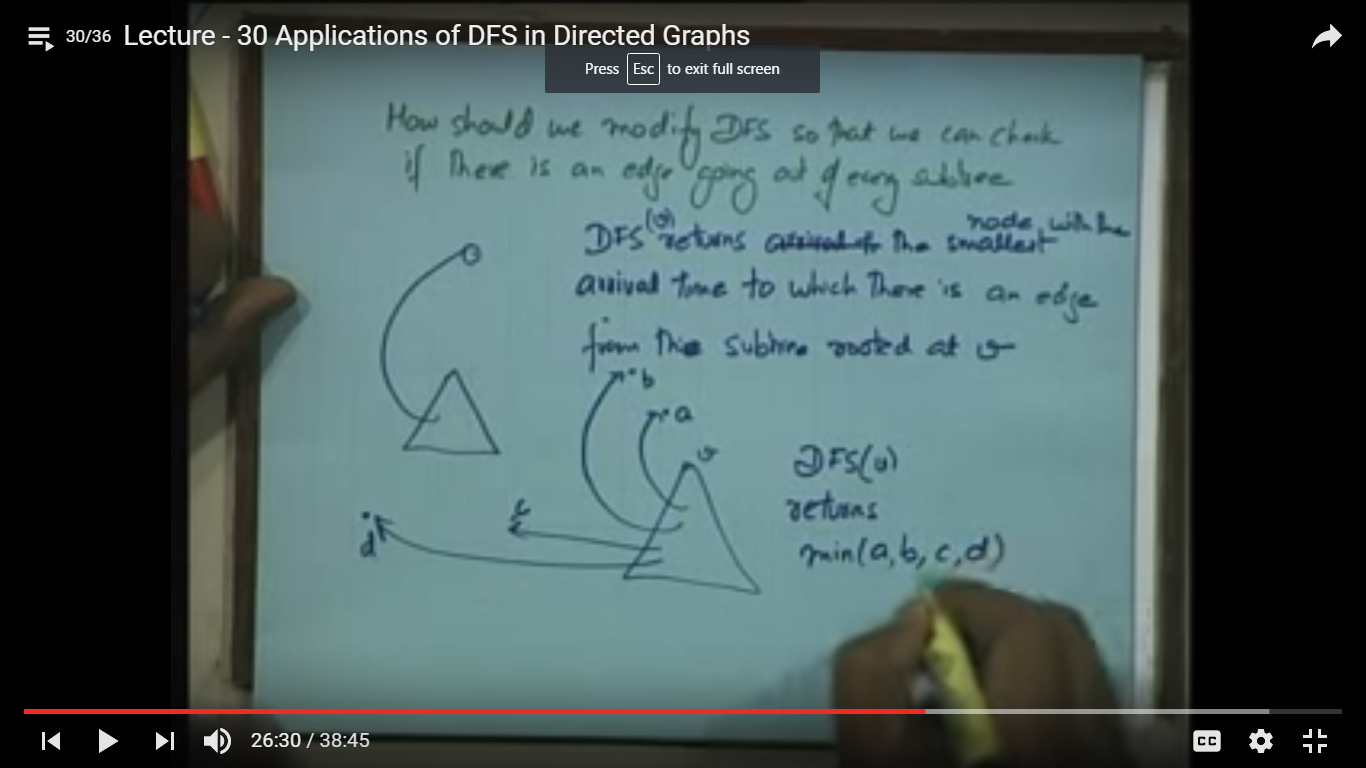 30/36 Lecture - 30 Applications of DFS in Directed Graphs
Press Esc to exit full screen
How should we modify DFS so that we can check
if there is an edge going out of every subtree
DFS(v) returns the smallest node with the
arrival time to which there is an edge
from the subtree rooted at v
b
a
v
c
d
DFS(v)
returns
min(a,b,c,d)
26:30 / 38:45
CC